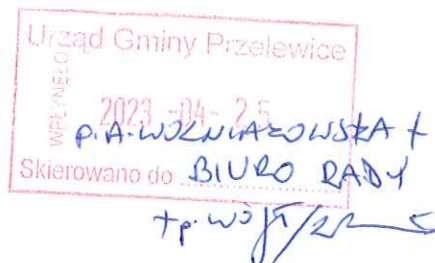 Urząd Gminy Przelewice
WPŁYNĘŁO
2023 -04- 25
p. A. WOŹNIAKOWSKA +
Skierowano do BIURO RADY
+ p. WÓJT